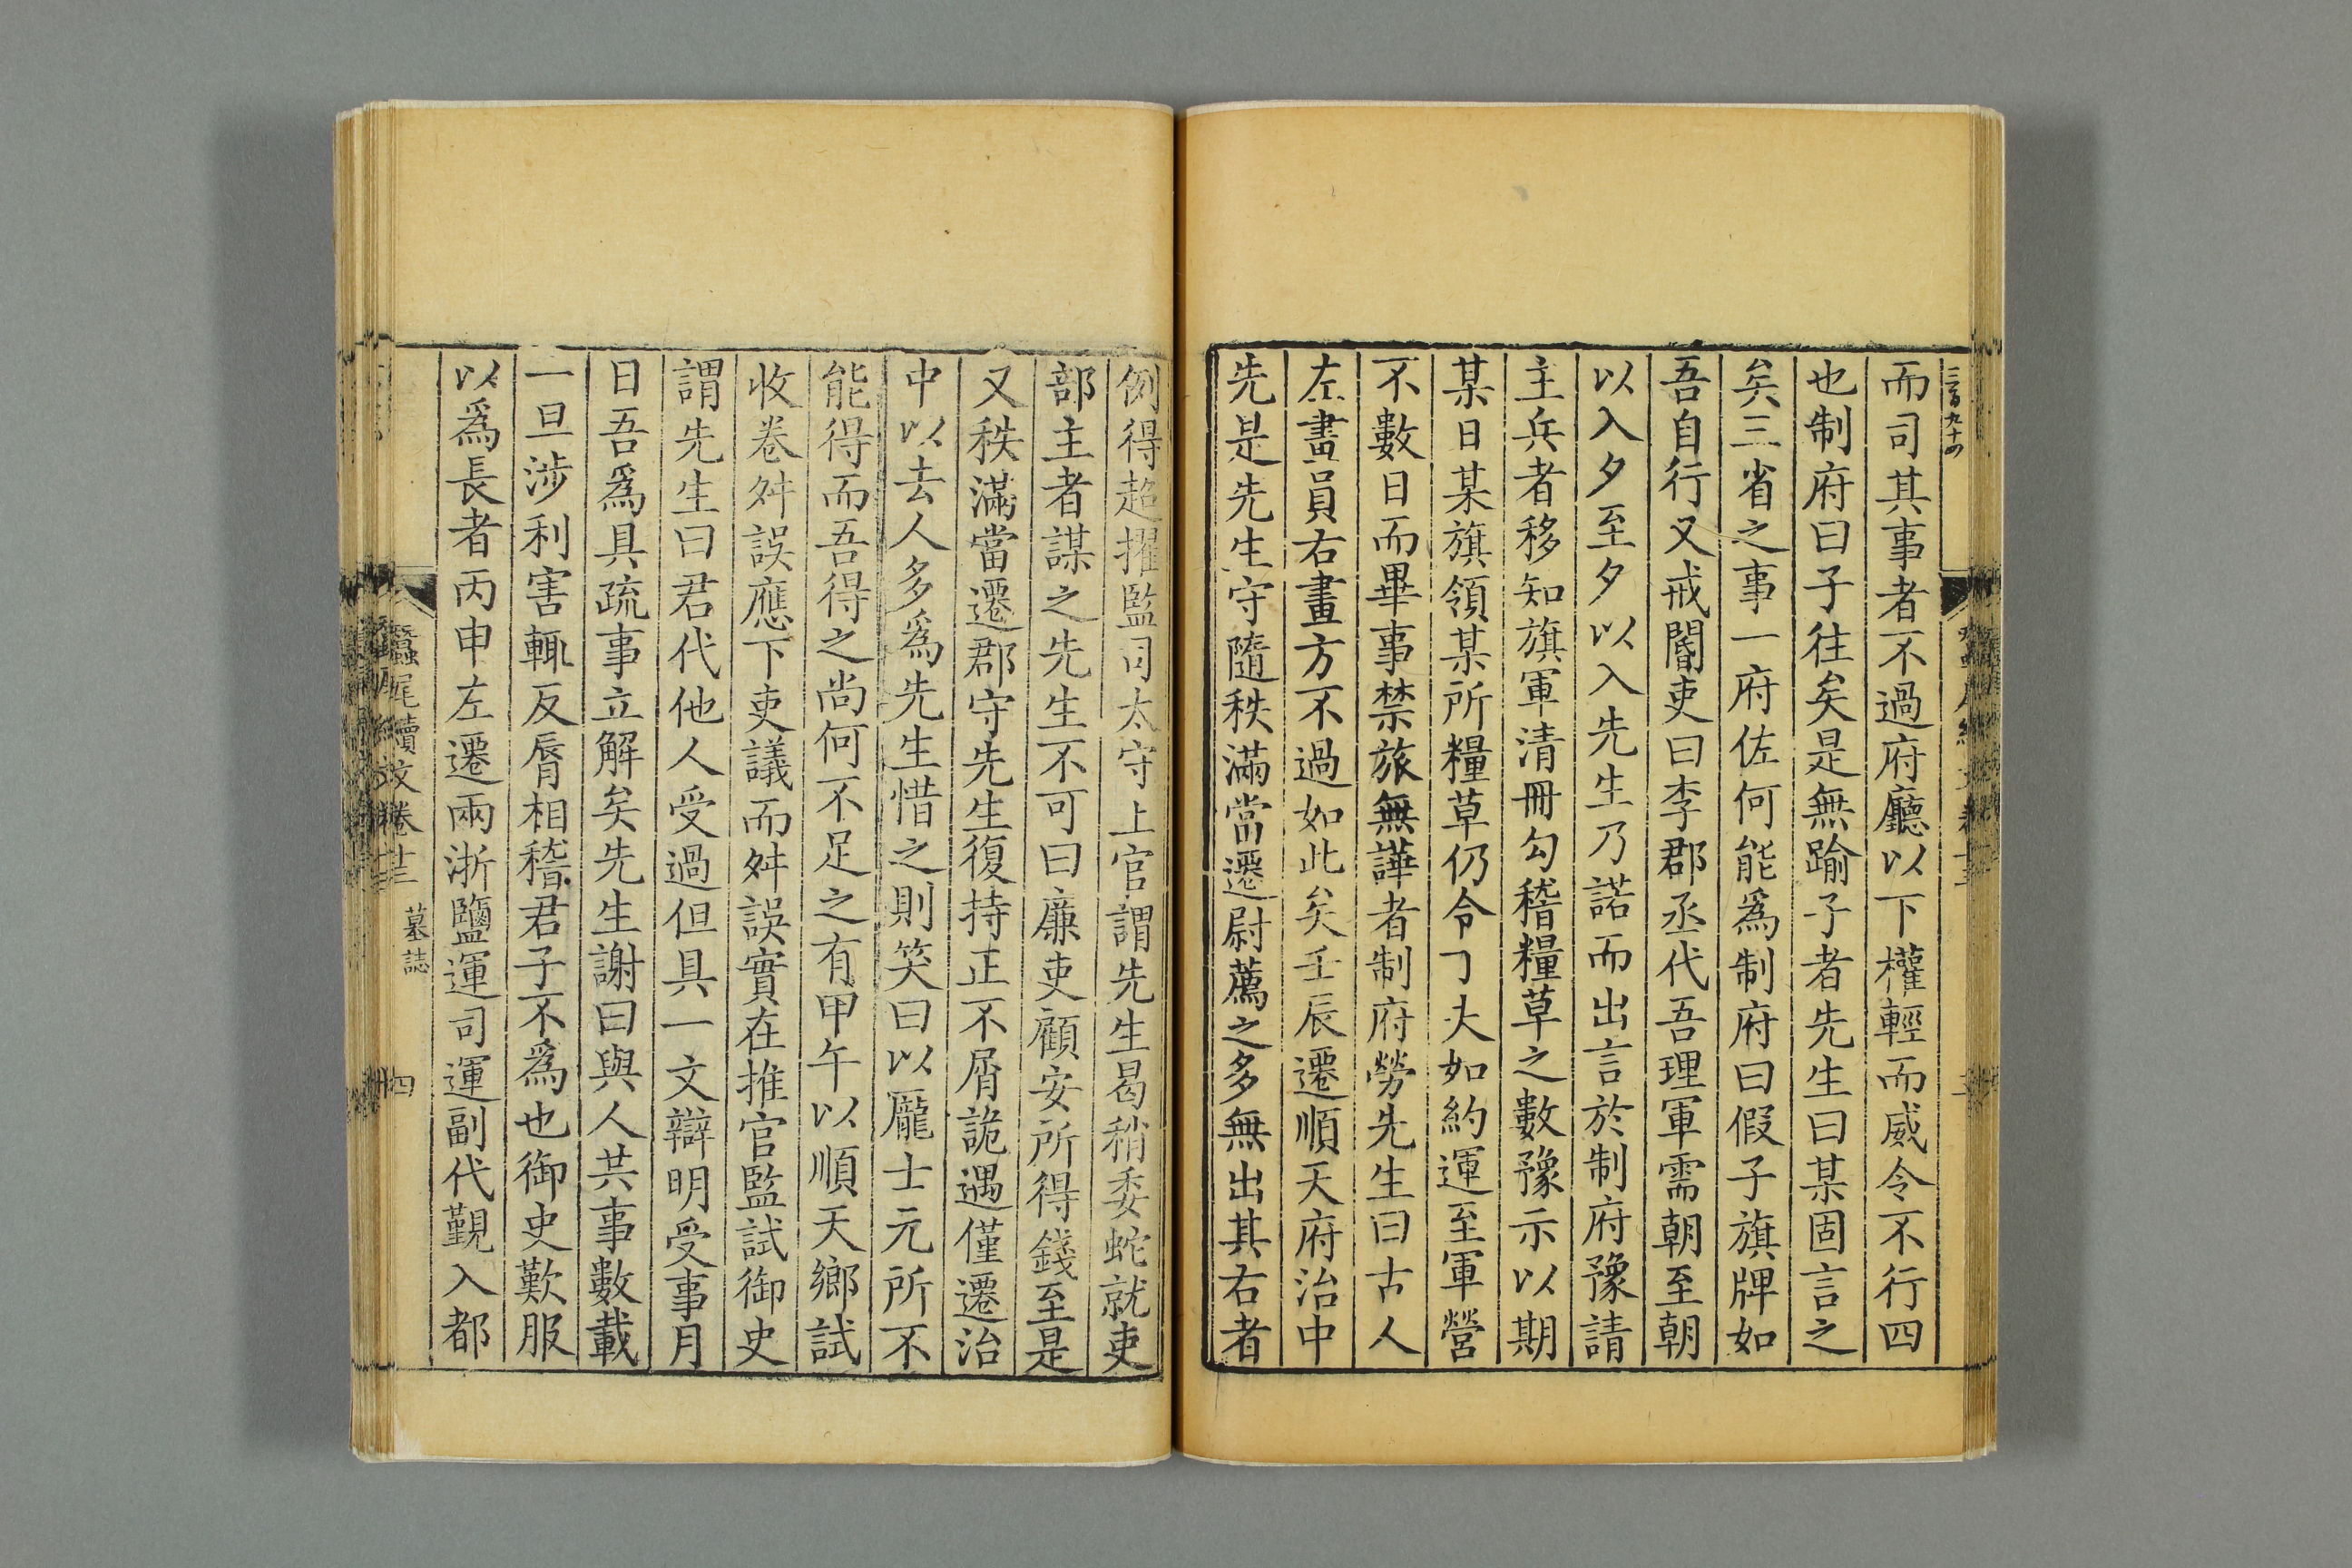 三百九十四
而司其事者不過府廳以下權輕而威令不行四
也制府曰子往矣是無踰子者先生曰某固言之
矣三省之事一府佐何能爲制府曰假子旗牌如
吾自行又戒閽吏曰李郡丞代吾理軍需朝至朝
以入夕至夕以入先生乃諾而出言於制府豫請
主兵者移知旗軍清冊勾稽糧草之數豫示以期
某日某旗領某所糧草仍令丁夫如約運至軍營
不數日而畢事禁旅無譁者制府勞先生曰古人
左畫員右畫方不過如此矣壬辰遷順天府治中
先是先生守隨秩滿當遷尉薦之多無出其右者
例得超擢監司太守上官謂先生曷稍委蛇就吏
部主者謀之先生不可曰廉吏顧安所得錢至是
又秩滿當遷郡守先生復持正不屑詭遇僅遷治
中以去人多爲先生惜之則笑曰以龐士元所不
能得而吾得之尚何不足之有甲午以順天鄉試
收卷舛誤應下吏議而舛誤實在推官監試御史
謂先生曰君代他人受過但具一文辯明受事月
日吾爲具疏事立解矣先生謝曰與人共事數載
一旦涉利害輒反脣相稽君子不爲也御史歎服
以爲長者丙申左遷兩浙鹽運司運副代覲入都
蠶尾續文卷十三 墓誌 四